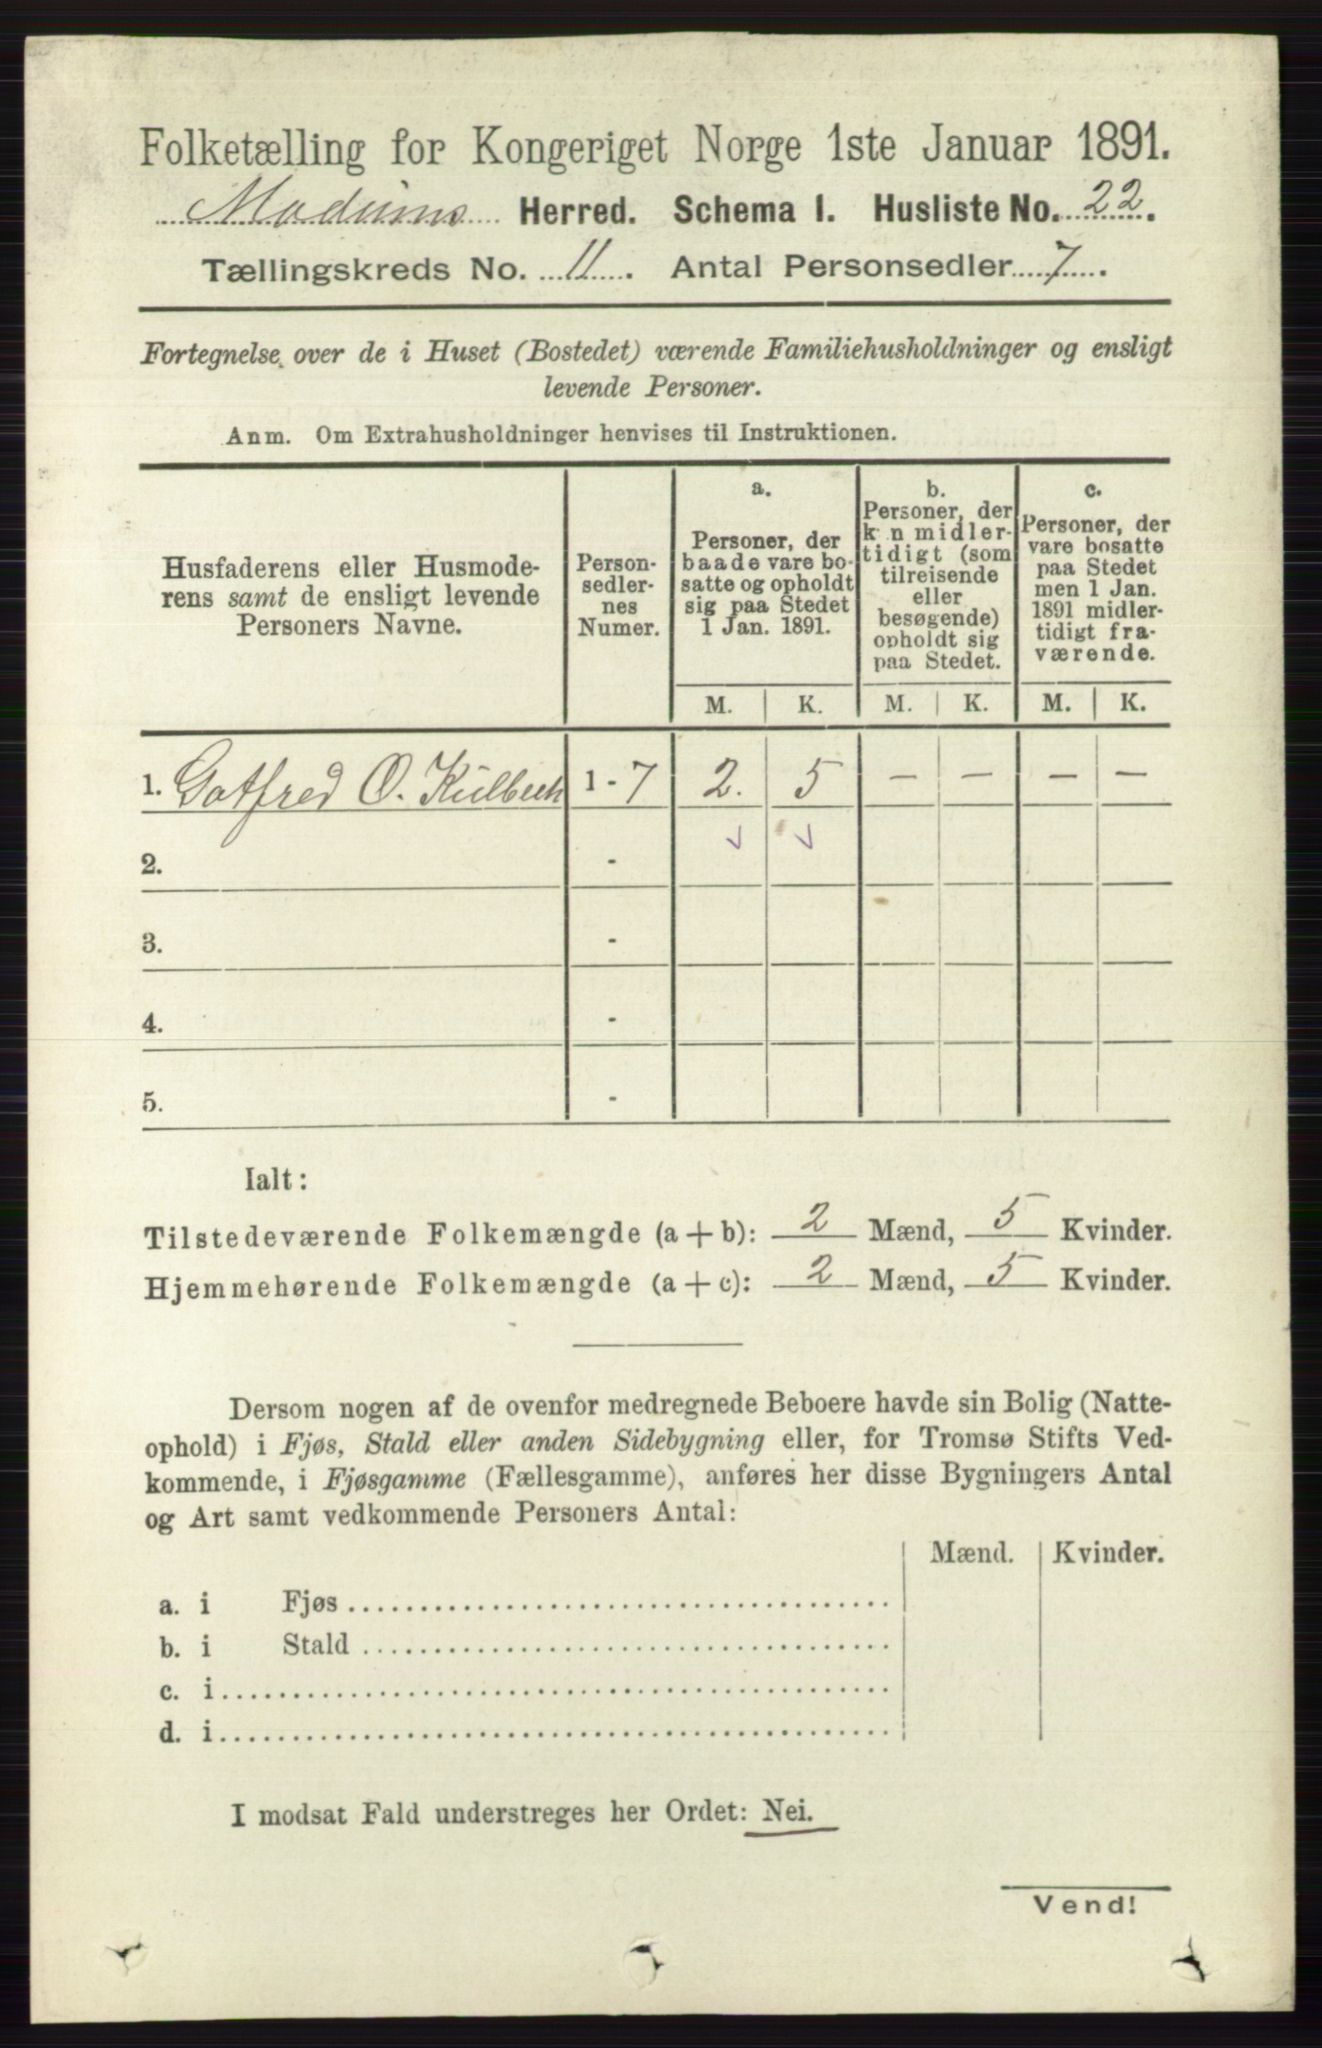 Folketælling for Kongeriget Norge 1ste Januar 1891.
Modums Herred. Schema 1. Husliste No. 22.
Tællingskreds No. 11. Antal Personsedler 7.
Fortegnelse over de i Huset (Bostedet) værende Familiehusholdninger og ensligt
levende Personer.
Anm. Om Extrahusholdninger henvises til Instruktionen.
Husfaderens eller Husmode-
rens samt de ensligt levende
Personers Navne.
Person-
sedler-
nes
Numer.
a.
Personer, der
baade vare bo-
satte og opholdt
sig paa Stedet
1 Jan. 1891.
b.
Personer, der
k n midler-
tidigt (som
tilreisende
eller
besøgende)
opholdt sig
paa Stedet.
c.
Personer, der
vare bosatte
paa Stedet
men 1 Jan.
1891 midler-
tidigt fra-
værende.
M. K. M. K. M. K.
1. Gotfred O. Külbech 1 - 7 2. 5 — — — —
2. -
3. -
4. -
5. -
Ialt:
Tilstedeværende Folkemængde (a + b): 2 Mænd, 5 Kvinder.
Hjemmehørende Folkemængde (a + c): 2 Mænd, 5 Kvinder.
Dersom nogen af de ovenfor medregnede Beboere havde sin Bolig (Natte-
ophold) i Fjøs, Stald eller anden Sidebygning eller, for Tromsø Stifts Ved-
kommende, i Fjøsgamme (Fællesgamme), anføres her disse Bygningers Antal
og Art samt vedkommende Personers Antal:
Mænd. Kvinder.
a. i Fjøs
b. i Stald
c. i
d. i
I modsat Fald understreges her Ordet: Nei.
Vend!